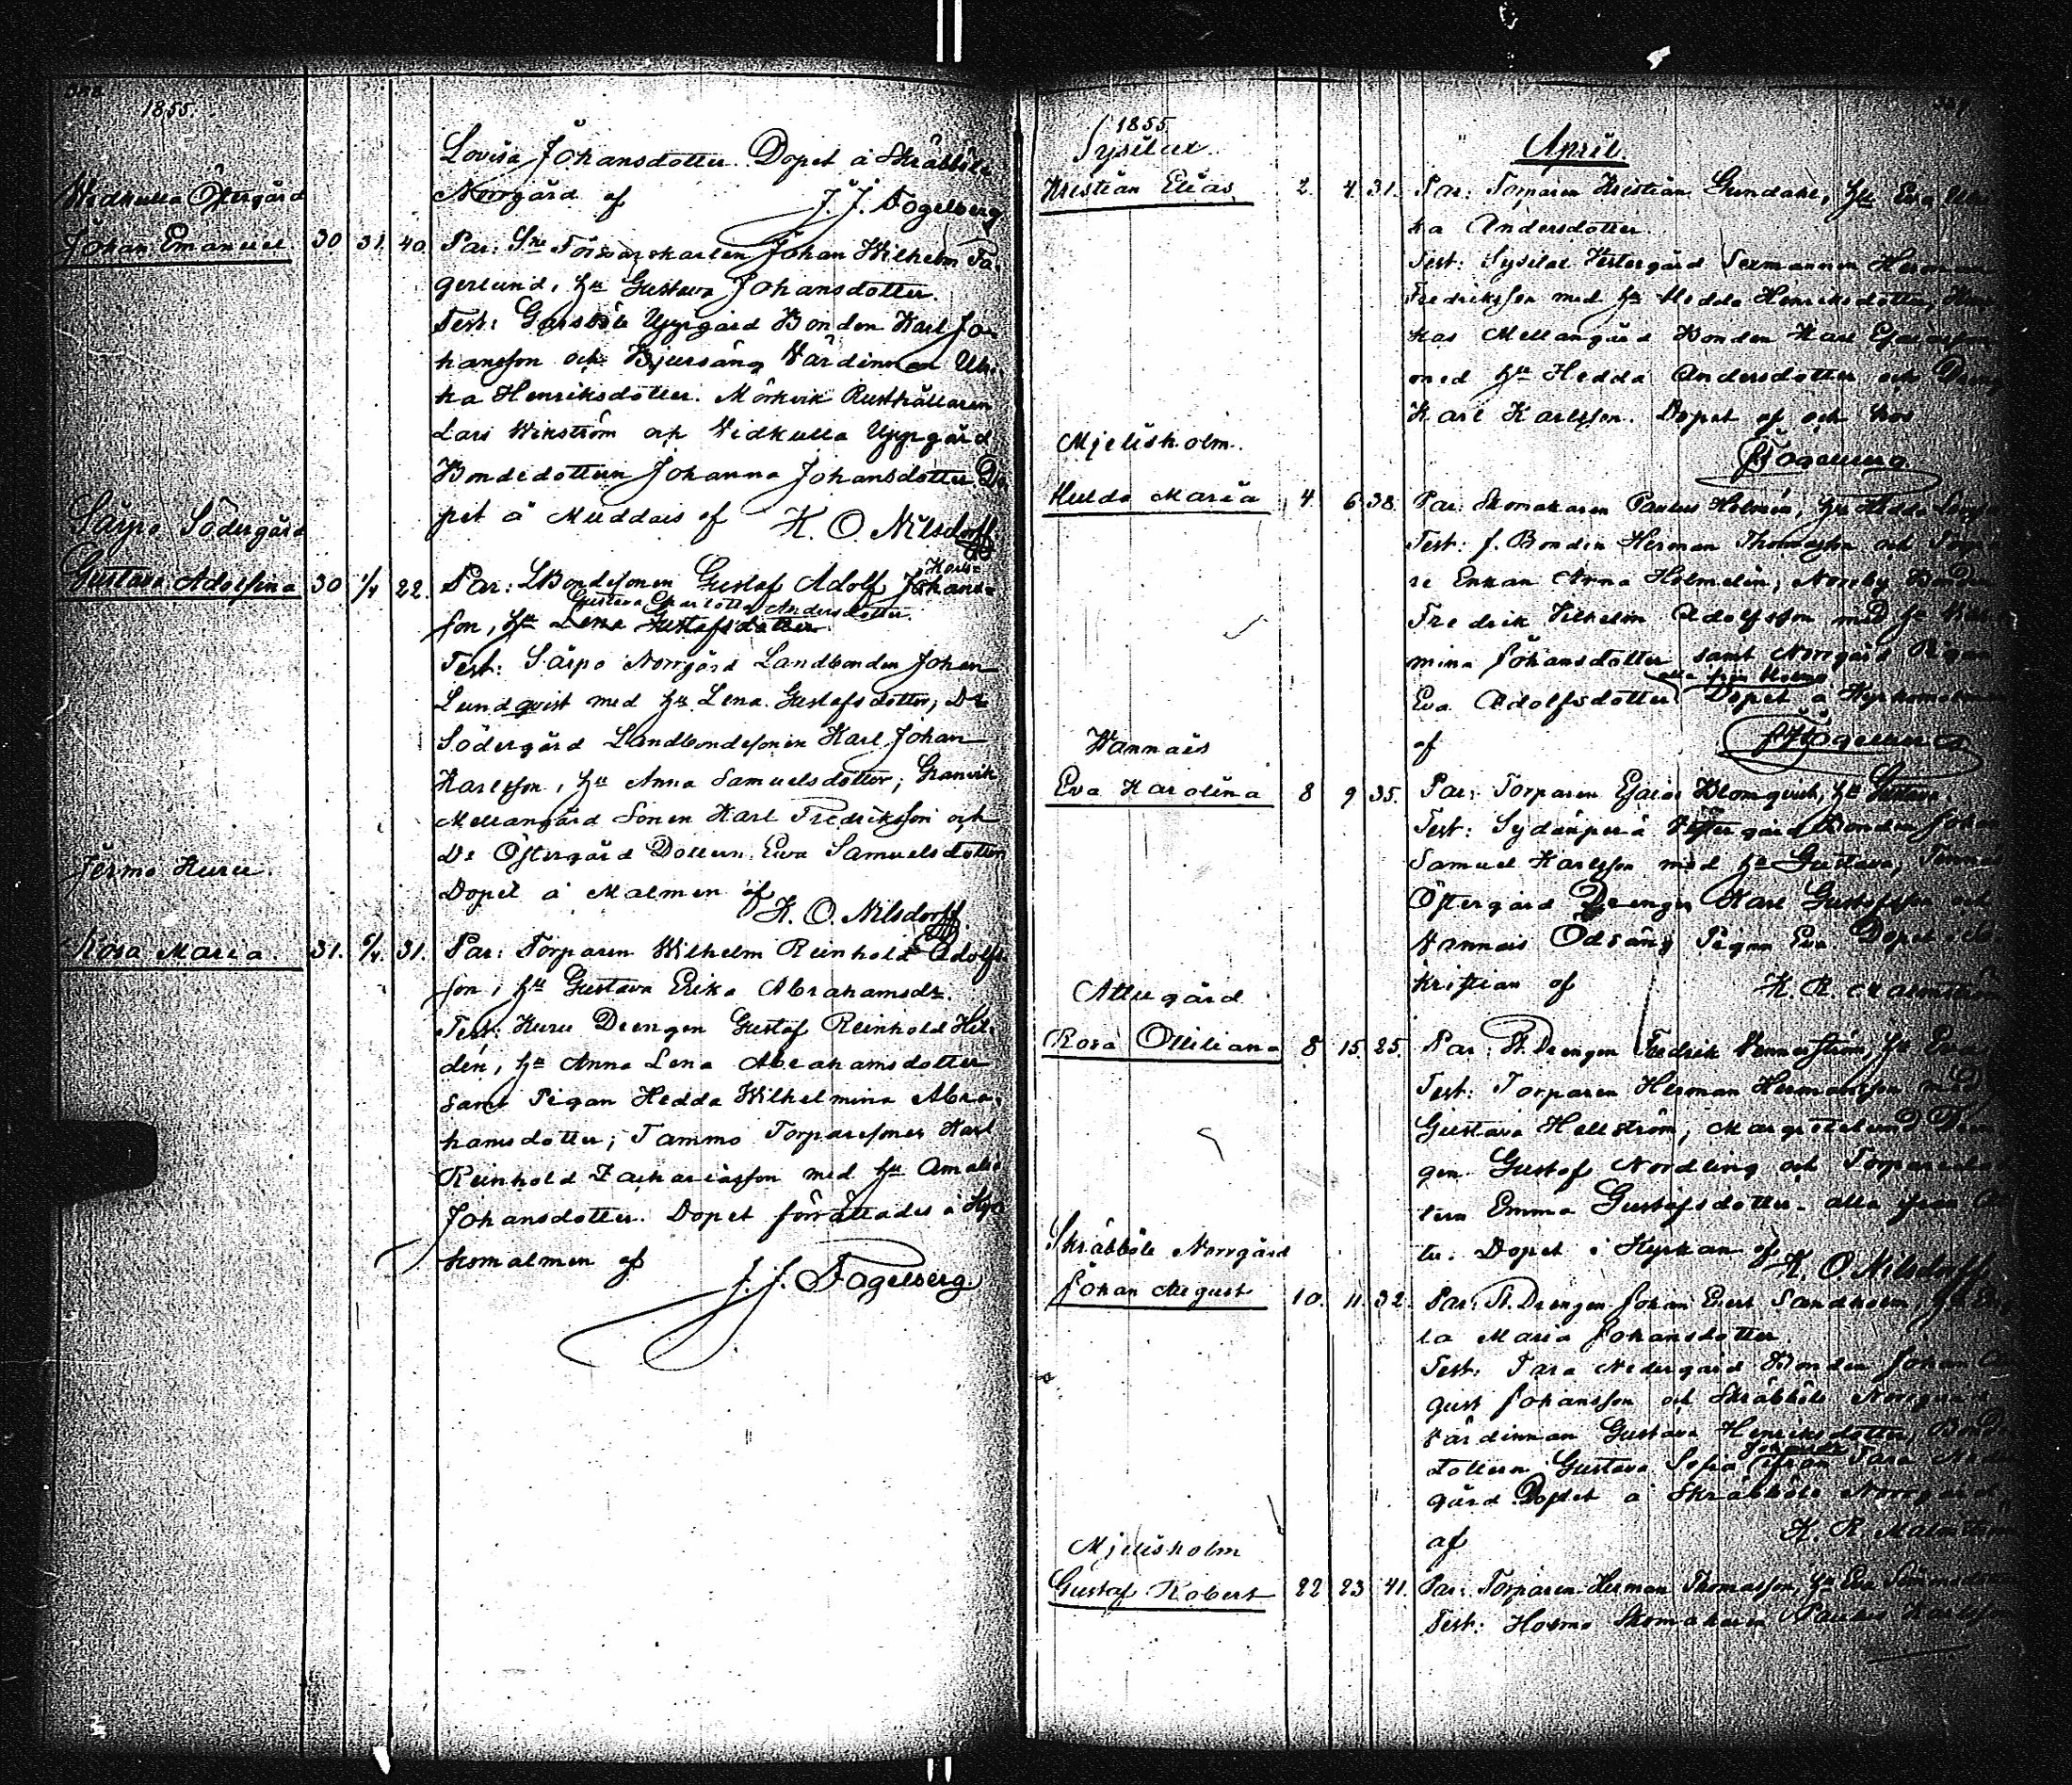 1855.
Lovisa Johansdotter. Dopet å Skräbböle
Norrgård af J. J. Fogelberg
Widkulla Östergård
Johan Emanuel 30 31. 40. Par: Johan Wilhelm Fa-
gerlund, h:u Gustava Johansdotter.
Test: Uppgård Bonden Karl Jo-
hansson och Bjursäng Värdinnan Ulri-
ka Henriksdotter. Mörkvik Rusthållaren
Lars Wikström och Widkulla Uppgård
Bondedottern Johanna Johansdotter Do-
pet å Muddais af K. O. Nilsdorff
Särpo Södergård
Gustava Adolfina 30 1/4 22. Par: LBondesonen Gustaf Adolf Johans-
Karls-
Gustava Charlotta Andersdotter.
son, h:u Lena Gustafsdotter.
Test: Särpo Norrgård Landbonden Johan
Lundqvist med h:u Lena Gustafsdotter; D:o
Södergård Landbondesonen Karl Johan
Karlsson, h:u Anna Samuelsdotter; Granvik
Mellangård Sonen Karl Fredriksson och
D:o Östergård Dottern Eva Samuelsdotter
Dopet å Malmen af
K. O. Nilsdorff
Jermo Kuru.
Rosa Maria. 31. 31. Par: Torparen Wilhelm Reinhold Adolfs-
son, h:u Gustava Erika Abrahamsd:r.
Test: Kuru Drengen Gustaf Reinhold Hel-
dén, h:u Anna Lena Abrahamsdotter
samt Pigan Hedda Wilhelmina Abra-
hamsdotter; Tammo Torparesonen Karl
Reinhold Zachariasson med h:u Amalia
Johansdotter. Dopet förrättades å Kyr-
komalmen af
J. J. Fogelberg
1855
April.
Sysilax.
Kristian Elias 2. 4. 31. Par: Torparen Kristian Grundahl, h:u Eva Ulri-
ka Andersdotter.
Test: Sysilax Vestergård Sexmannen Herman
Fredriksson med h:u Hedda Henriksdotter,
Mellangård Bonden Karl Esaiasson
med h:u Hedda Andersdotter och Dreng
Karl Karlsson. Dopet af och hos
Fogelberg
Mjelisholm.
Hulda Maria 4 6 38. Par: Skomakaren Paulus Holmén, h:u Hedda
Test: f. Bonden Herman Thomasson och
re Enkan Anna Holmelin; Norrby Bonden
Fredrik Vilhelm Adolfsson med h:u Wilhel-
mina Johansdotter samt Norrgård Pigan
alla från Holmo
Eva Adolfsdotter. Dopet å Kyrkomalmen
af Fogelberg
Wannais
Eva Karolina 8 9 35. Par: Torparen Esaias Blomqvist, h:u Gustava
Test: Sydänperä Vestergård Bonden Johan
Samuel Karlsson med h:u Gustava;
Östergård Drengen Karl Gustafsson och
Wannais Ödsäng Pigan Eva. Dopet
Kristian af K. R. Malmström
Attugård
Rosa Otiliana 8 15. 25. Par: St. Drengen Fredrik Wennerström, h:u Eva
Test: Torparen Herman Hermansson med
Gustava Hellström; Margretelund Dren-
gen Gustaf Nordling och Torparedot-
tern Emma Gustafsdotter, alla från
tu. Dopet i Kyrkan af K. O. Nilsdorff
Skräbböle Norrgård
Johan August 10. 11. 32. Par: St. Drengen Johan Evert Sandholm, h:u
la Maria Johansdotter.
Test: Tara Nedergård Bonden Johan Au-
gust Johansson och Skräbböle Norrgård
Värdinnan Gustava Henriksdotter, Bonde-
dottern Gustava Sofia från Tara Neder-
gård Dopet å Skräbböle Norrgård
af K. R. Malmström
Mjelisholm
Gustaf Robert 22 23 41. Par: Torparen Herman Thomasson, h:u Eva Simonsdotter
Test: Holmo Skomakaren Paulus Karlsson